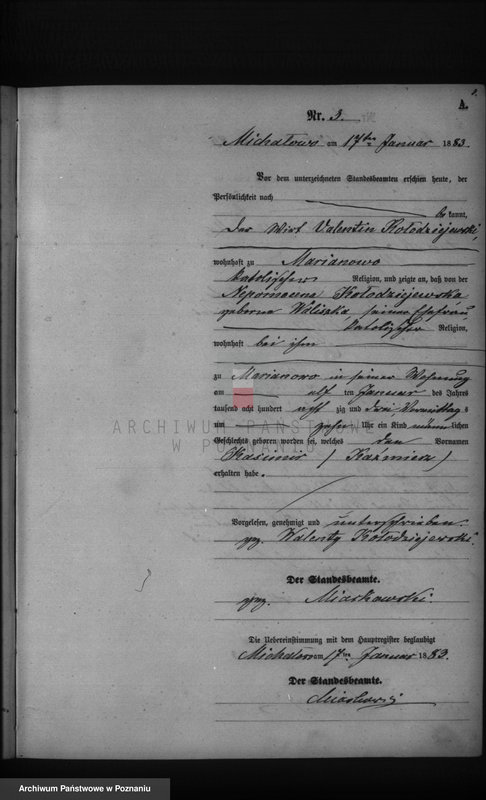 A.
Nr. 3.
Michałowo am 17ten Januar 1883.
Vor dem unterzeichneten Standesbeamten erschien heute, der
Persönlichkeit nach
be kannt,
der Wirt Valentin Kołodziejewski,
wohnhaft zu Marianowo
katolischer Religion, und zeigte an, daß von der
Nepomucena Kołodziejewska
geborne Woliszka, seiner Ehefrau,
katolischer Religion,
wohnhaft bei ihm
zu Marianowo in seiner Wohnung
am elf ten Januar des Jahres
tausend acht hundert acht zig und drei, Vormittags
um zehn Uhr ein Kind männlichen
Geschlechts geboren worden sei, welches den Vornamen
Kasimir (Kaźmierz)
erhalten habe.
Vorgelesen, genehmigt und unterschrieben.
gez. Walenty Kołodziejewski.
Der Standesbeamte.
gez. Miaskowski.
Die Uebereinstimmung mit dem Hauptregister beglaubigt
Michałowo am 17ten Januar 1883.
Der Standesbeamte.
Miaskowski
ARCHIWUM PAŃSTWOWE
W POZNANIU
Archiwum Państwowe w Poznaniu